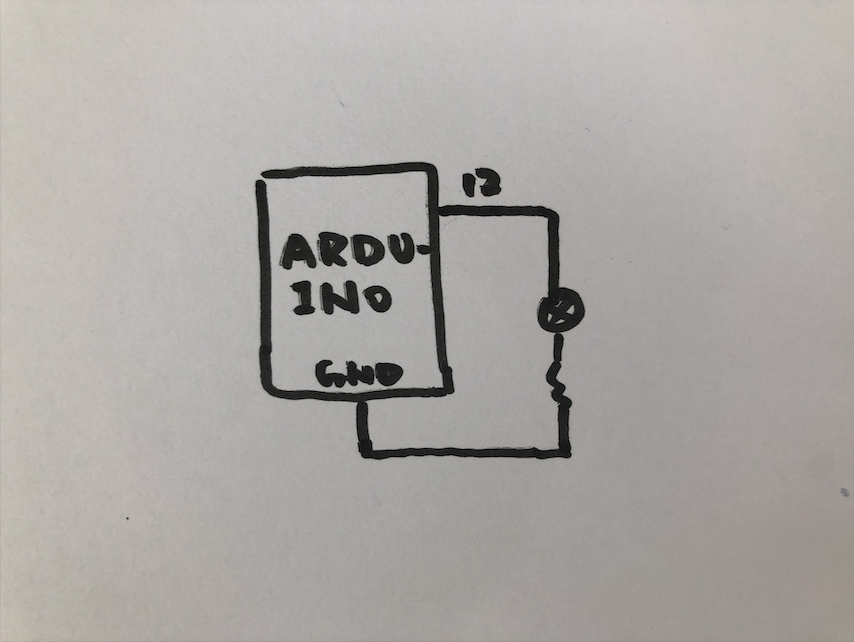 ARDU-
INO
GND